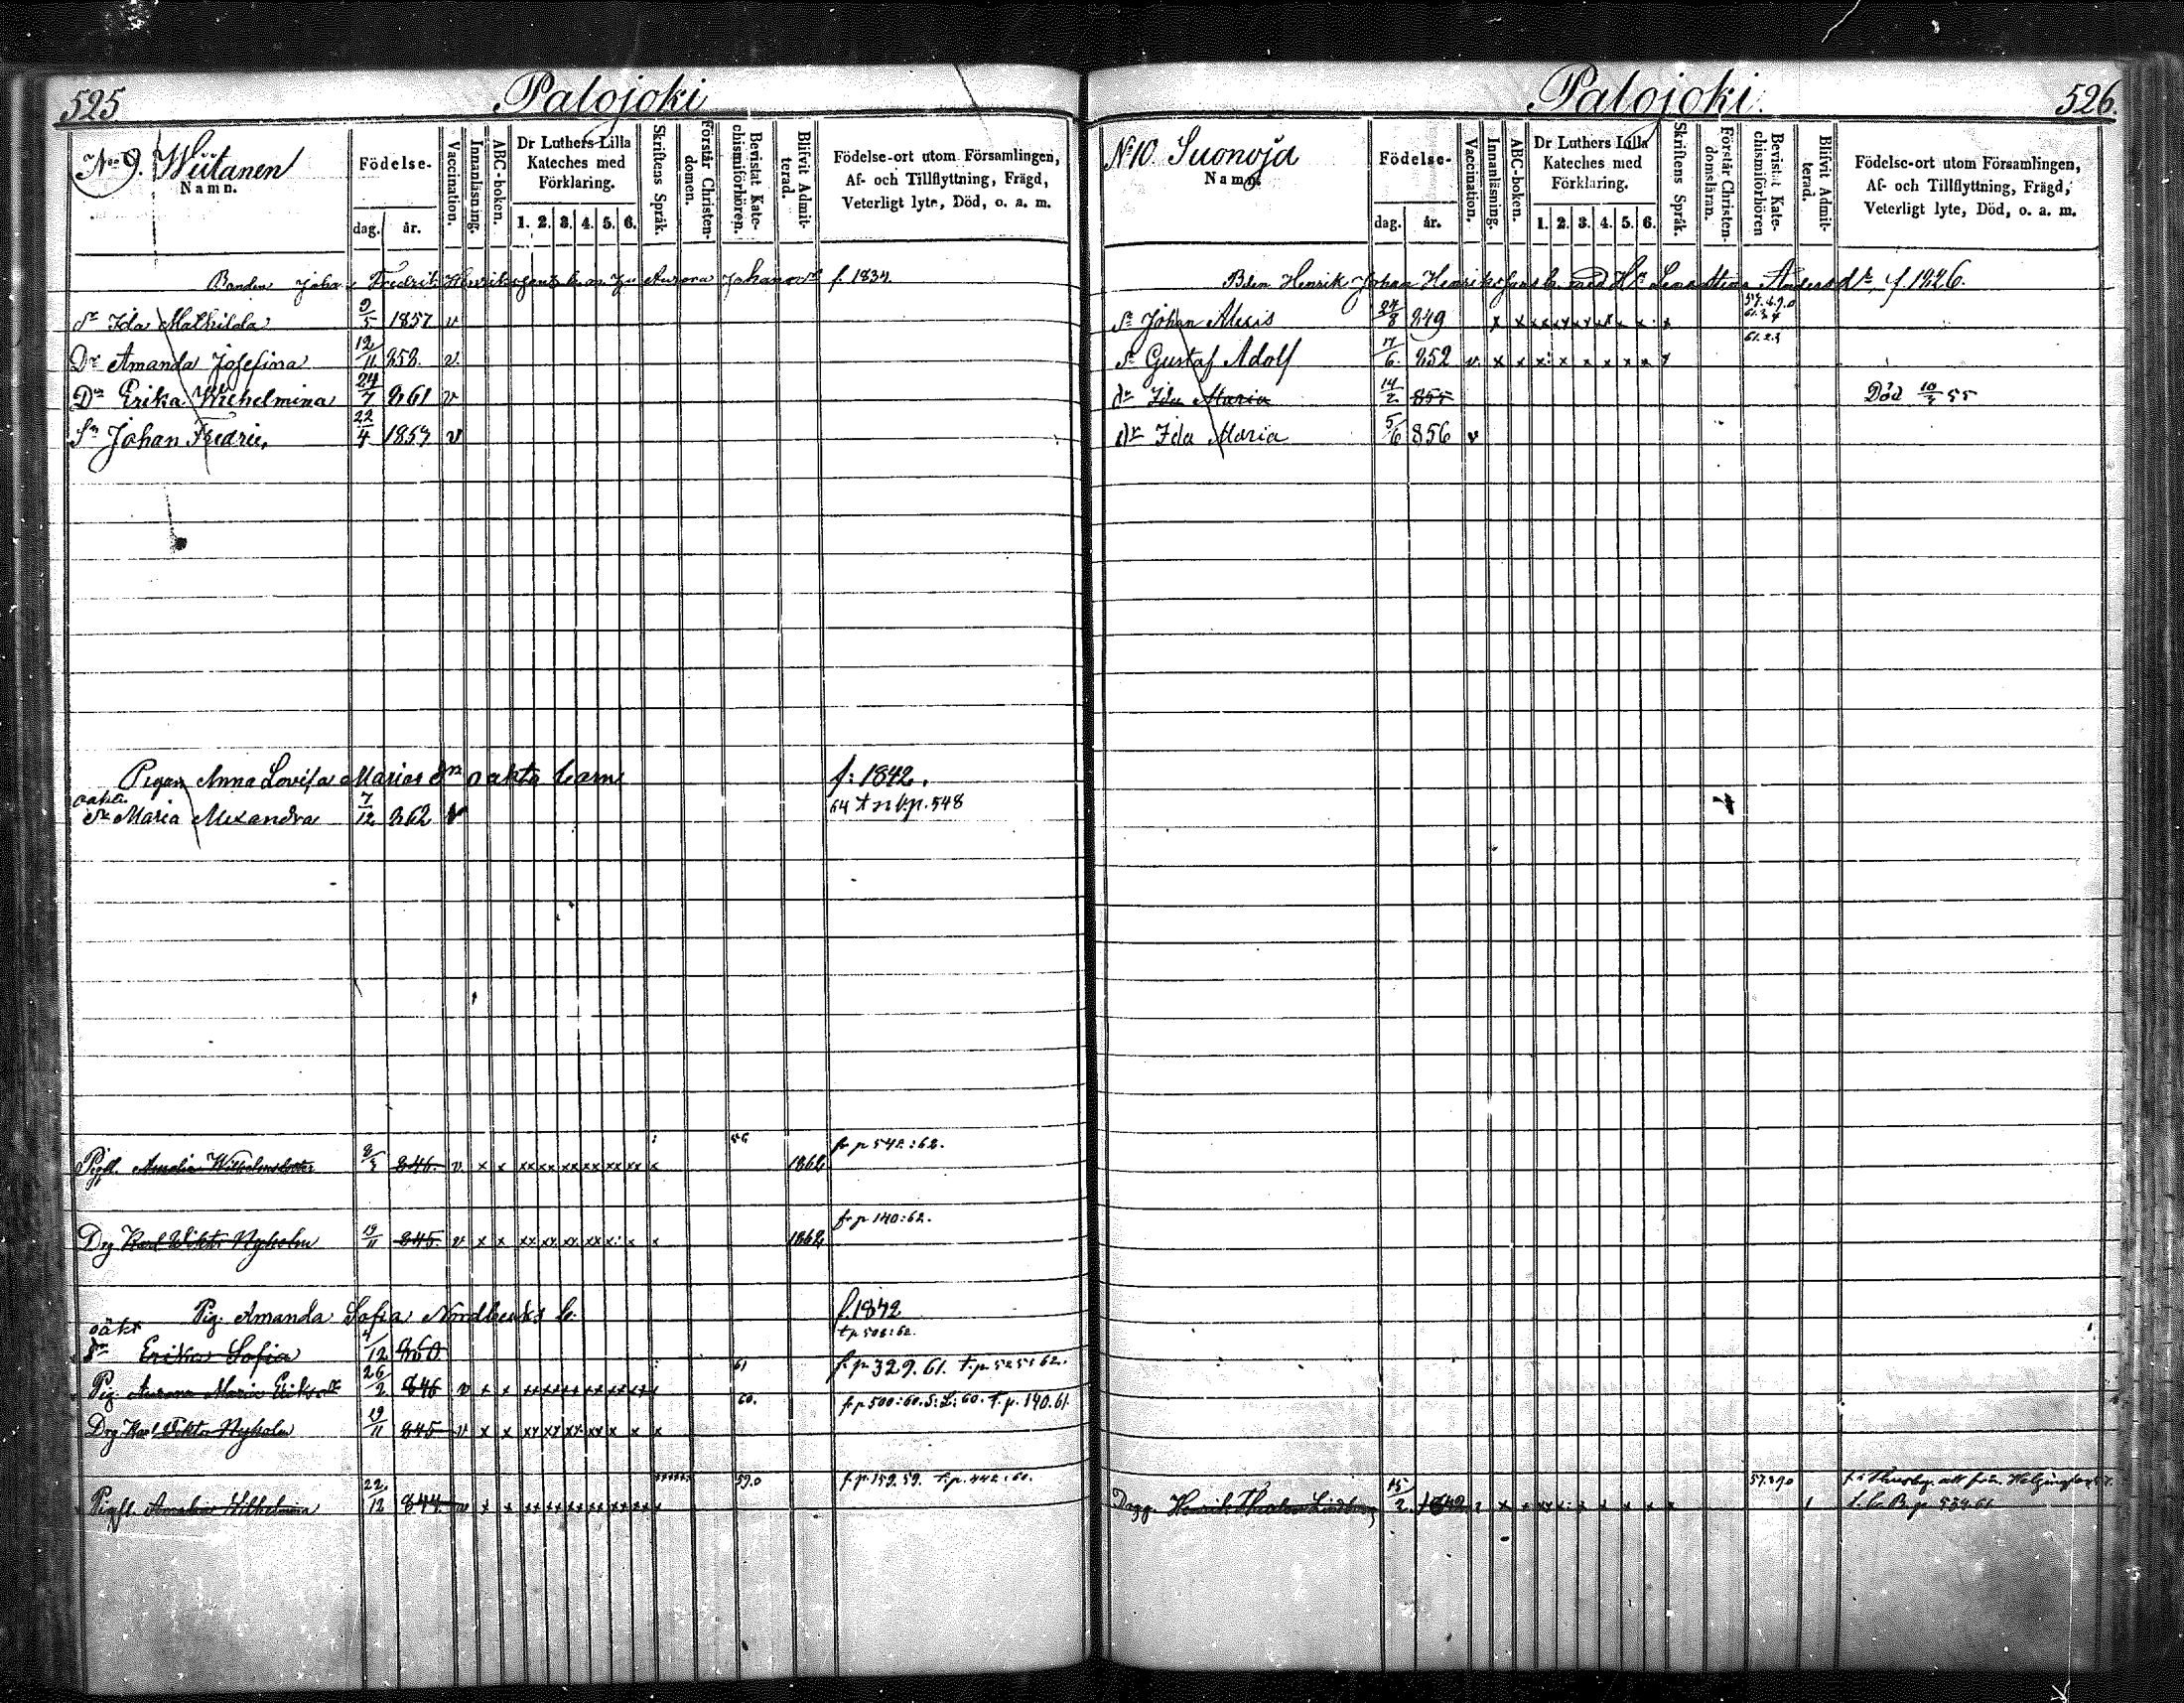 525
Palojoki
No 9. Wiitanen
Namn.
Födelse-
dag.
år.
Vaccination.
Innanläsning.
ABC-boken.
Dr Luthers Lilla
Kateches med
Förklaring.
1. 2. 3. 4. 5. 6.
Skriftens Språk.
Förstår Christen-
domen.
Bevistat Kate-
chismiförhören.
Blifvit Admit-
terad.
Födelse-ort utom Församlingen,
Af- och Tillflyttning, Frägd,
Veterligt lyte, Död, o. a. m.
Bonden Johan Fredrik Henrikss Aurora f. 1834.
Dr Ida Mathilda 5 1857 v
Dr Amanda Josefina 12/11 858. v.
Dr Erika Wilhelmina 24/7 861 v
Sn Johan Fredric, 22/4 1859 v
Pigan Anna Lovisa Marias dr oäkta barn f: 1842.
oäkta
dr Maria Alexandra 7/12 862 v 64 t n b.p. 548
Pigfl. Amalia Wilhelmsdotter 846. v x x xx xx xx xx xx xx x 1862 fr p 542:62.
Drg Karl Wiktor Nyholm 19/11 845. v x x xx xx xx xx x x x 1862 fr p 140:62.
Pig. Amanda Sofia b. f. 1842
oäkt t p 508:62.
dr Erika Sofia 12 860.
Pig. Aurora Maria Eriksdr 26/2 846 v x x 61 f. p 329. 61. T. p 525:62.
Drg Karl Viktor Nyholm 19/11 845 v x x xx xx xx xx x x x 60. f. p 500:60. T. p. 140. 61
Pigfl. Amalia Wilhelmina 22/12 844. v x x 59.0 f. p. 159. 59. T. p. 442:60.
Palojoki.
526.
N 10. Suonoja
Namn.
Födelse-
dag.
år.
Vaccination.
Innanläsning.
ABC-boken.
Dr Luthers Lilla
Kateches med
Förklaring.
1. 2. 3. 4. 5. 6.
Skriftens Språk.
Förstår Christen-
domsläran.
Bevistat Kate-
chismiförhören
Blifvit Admit-
terad.
Födelse-ort utom Församlingen,
Af- och Tillflyttning, Frägd,
Veterligt lyte, Död, o. a. m.
Bdn Henrik Johan Henrikssons b. med Lena Stina Andersdr, f. 1826.
Sn Johan Alexis 24/8 849 x x
Sn Gustaf Adolf 7/6. 852 v. x x x x x x x x 61. 2. 3
dr Ida Maria 14/2 855 Död 10/3 55
dr Ida Maria 5/6 856 v
Henrik Lindberg 15/2. 1842 f. i Thusby. att från Helsingfors
L. b. B. p. 539. 61.